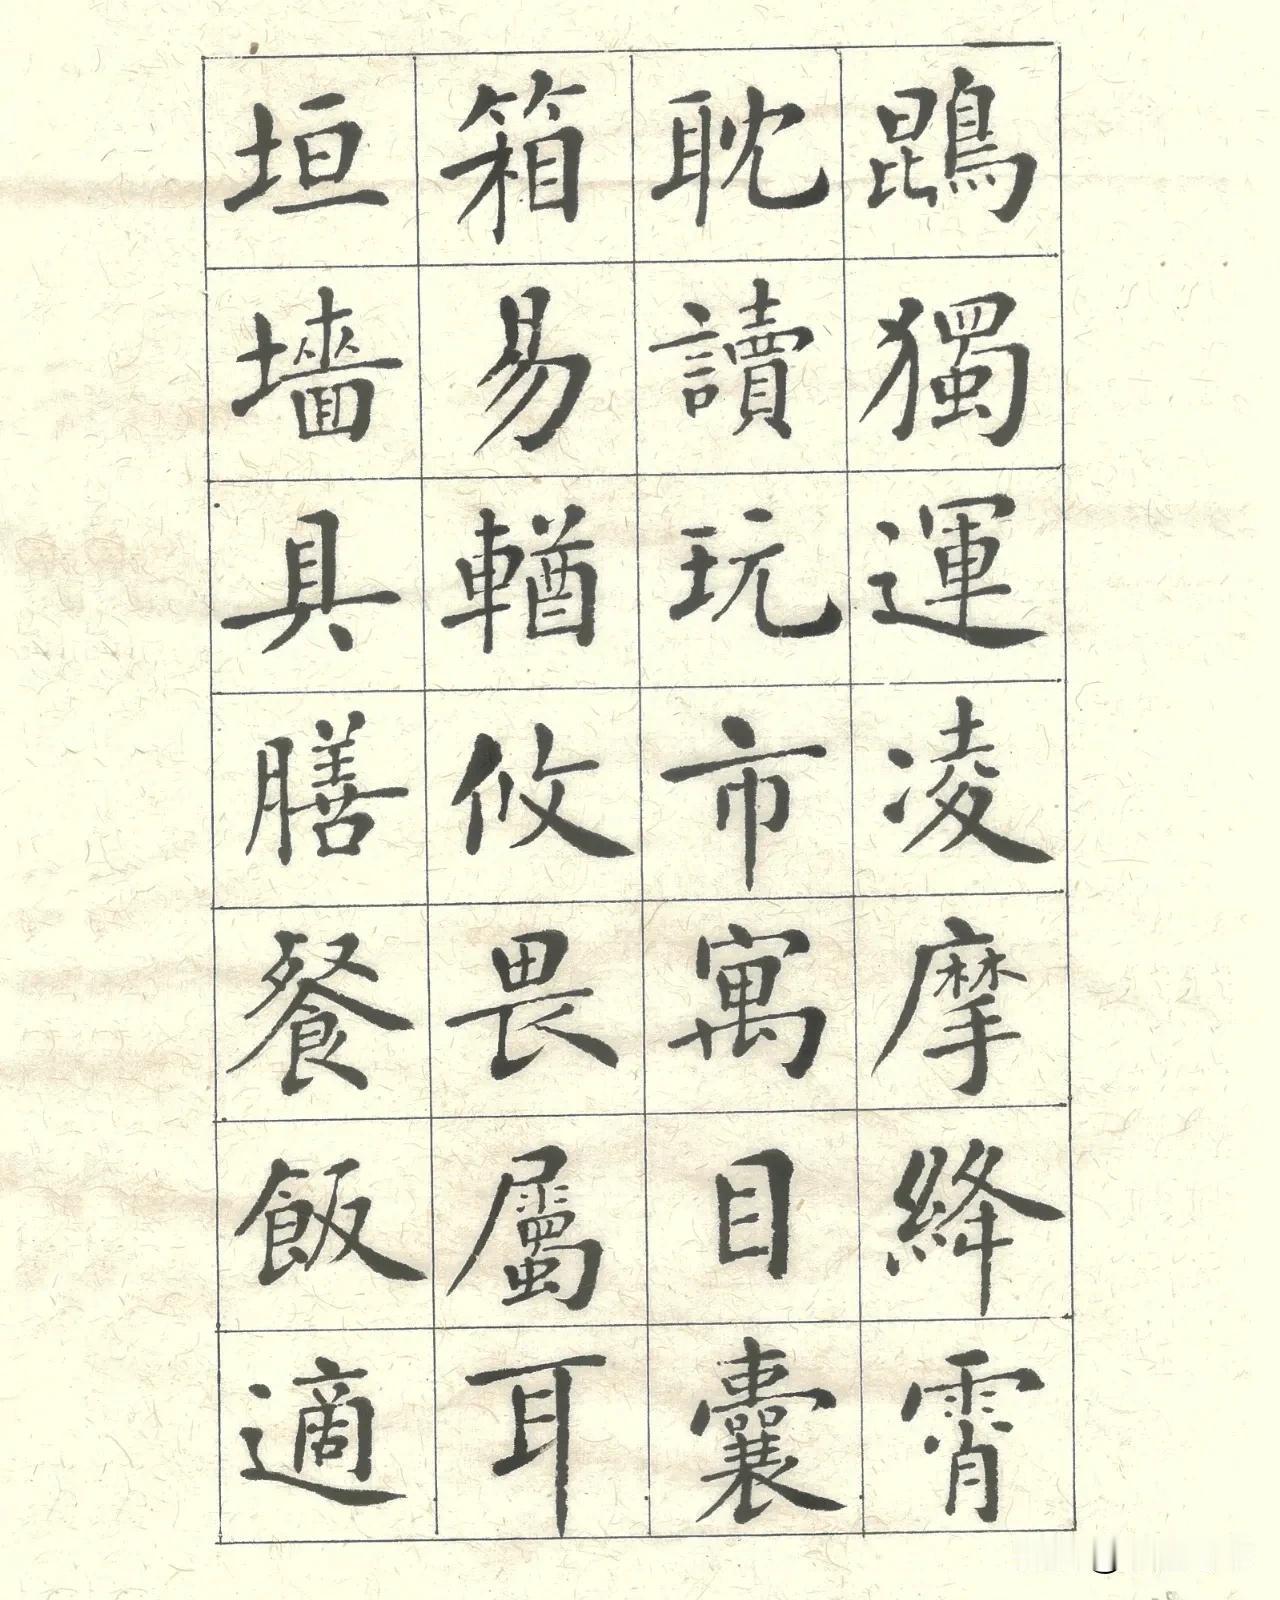 鵾獨運凌摩絳霄
耽讀玩市寓目囊
箱易輶攸畏屬耳
垣墻具膳餐飯適